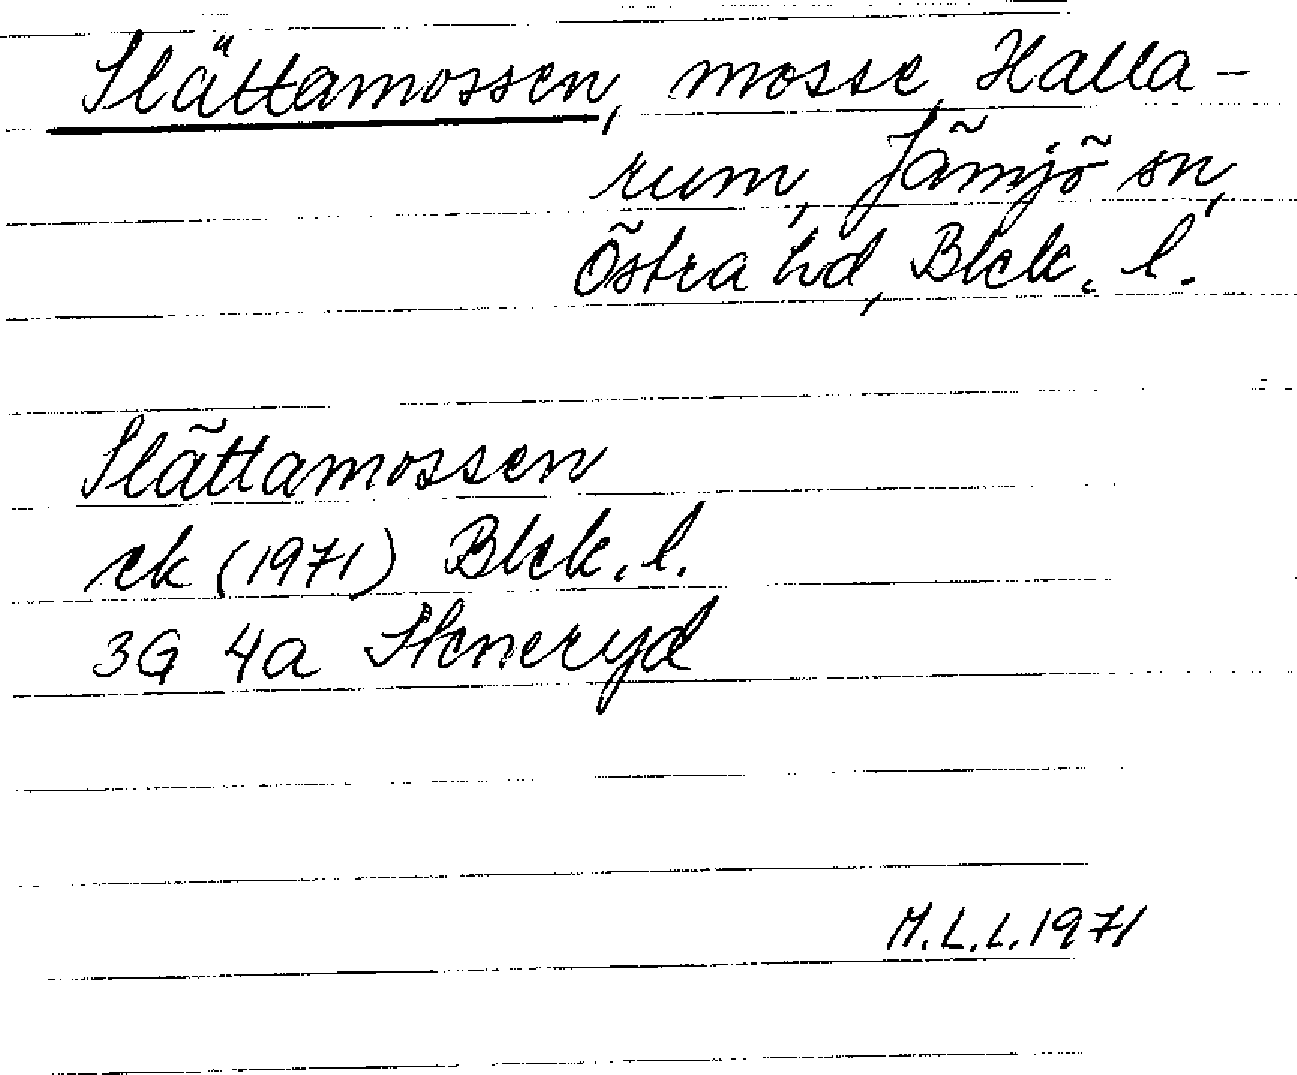 Slättamossen, mosse, Halla-
rum, Jämjö sn,
Östra hd, Blek. l.
Slättamossen
ek (1971) Blek. l.
3G 4a Steneryd
M.L.L. 1971